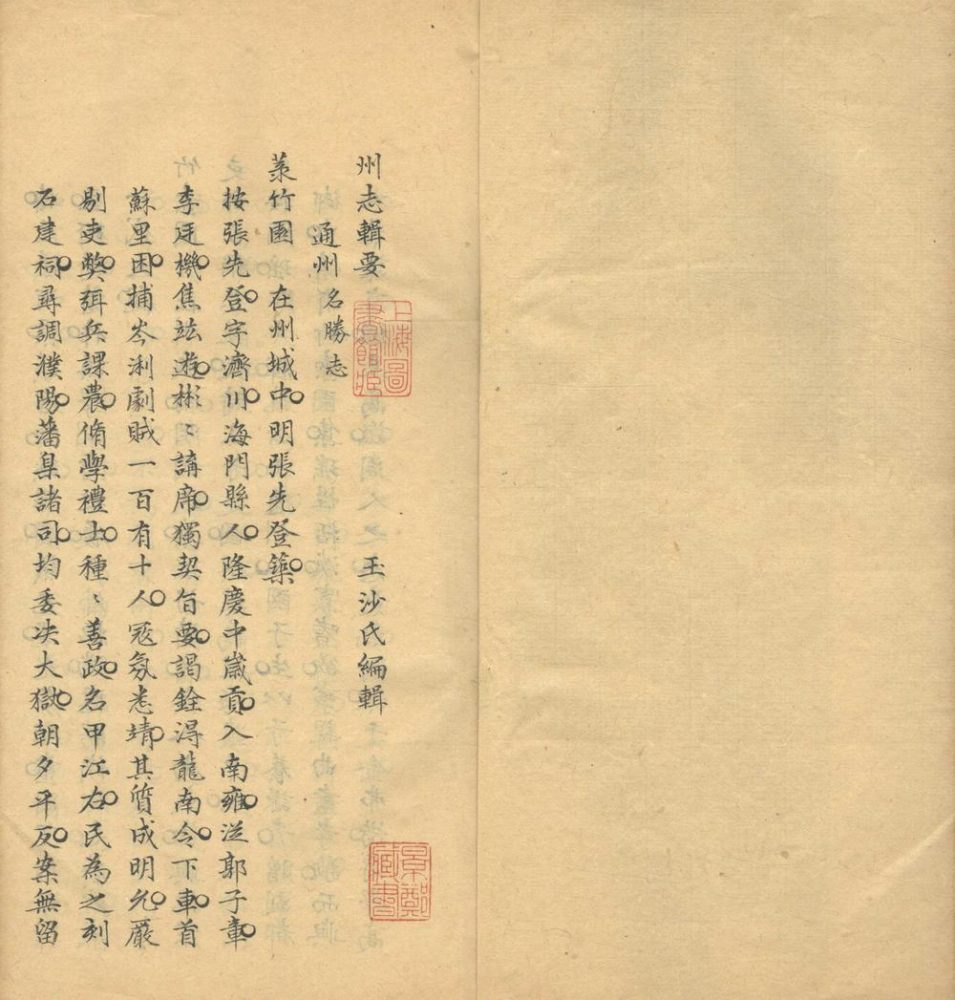 州志輯要　玉沙氏編輯
通州名勝志
菉竹園 在州城中明張先登築
按張先登字濟川海門縣人隆慶中歲貢入南雍從郭子章
李廷機焦竑遊彬〻講席獨契旨要謁銓得龍南令下車首
蘇里困捕岑浰劇賊一百有十人冦氛悉靖其質成明允嚴
剔吏弊弭兵課農脩學禮士種〻善政名甲江右民為之刻
石建祠尋調濮陽藩臬諸司均委决大獄朝夕平反案無留
上海圖書館藏
景鄭藏書